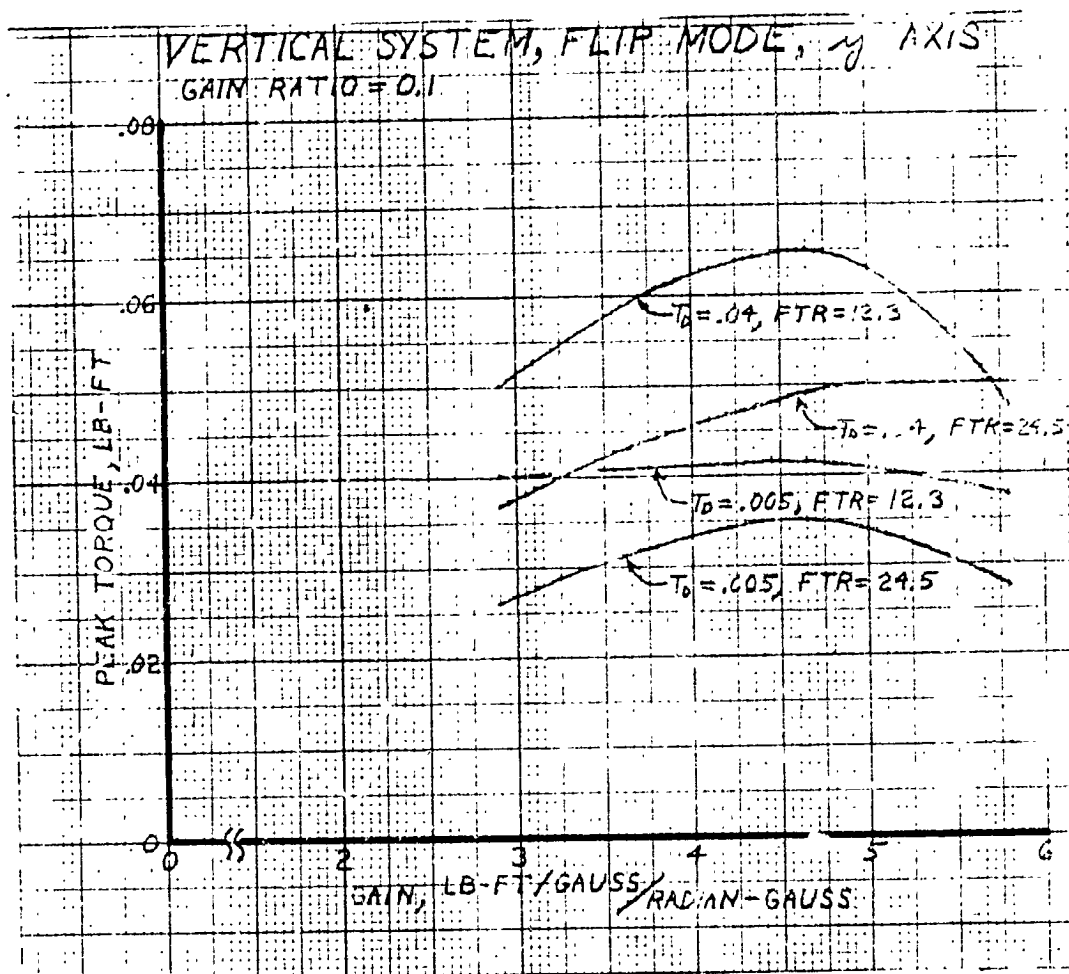 VERTICAL SYSTEM, FLIP MODE, y AXIS
GAIN RATIO = 0.1
.08
.06
.04
.02
0
PEAK TORQUE, LB-FT
T_D=.04, FTR=12.3
FTR=24.5
T_D=.005, FTR=12.3
T_D=.005, FTR=24.5
0 2 3 4 5 6
GAIN, LB-FT/GAUSS/RADIAN-GAUSS